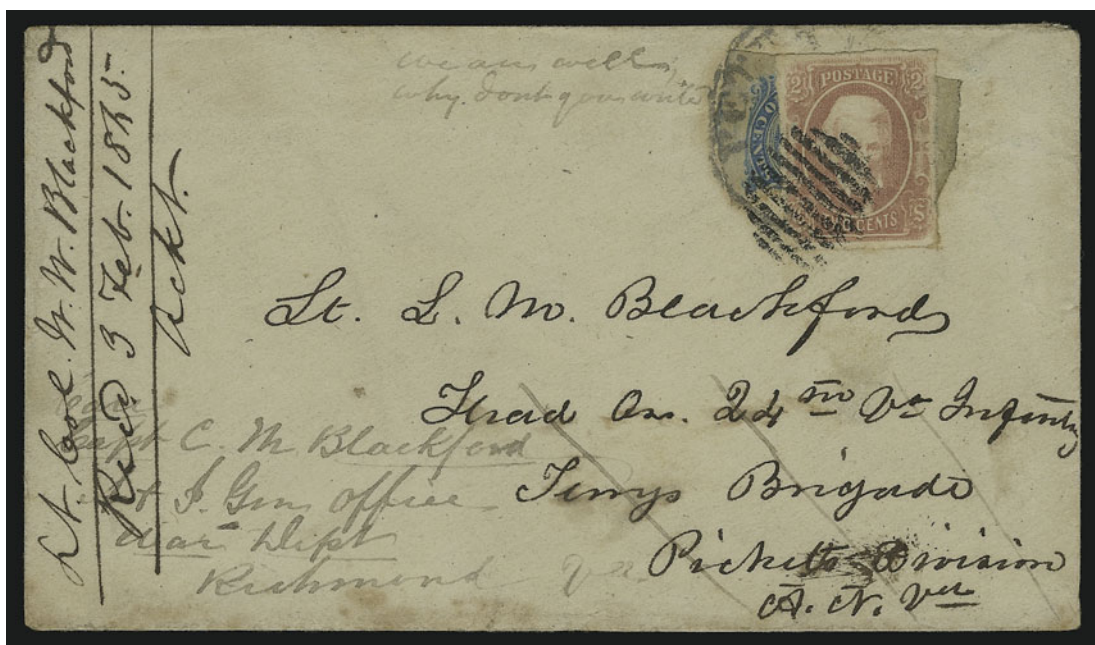 Lt. Col. W. W. Blackford
Recd 3 Feb. 1865.
Ackt.
we are well,
why dont you write
POSTAGE
2 2
TWO CENTS
O CENTS
Lt. L. M. Blackford
Head Qrs. 24th Va Infantry
Terrys Brigade
Picketts Division
A. N. Va
Care
Capt C. M Blackford
J. Gen office
War Dept
Richmond Va